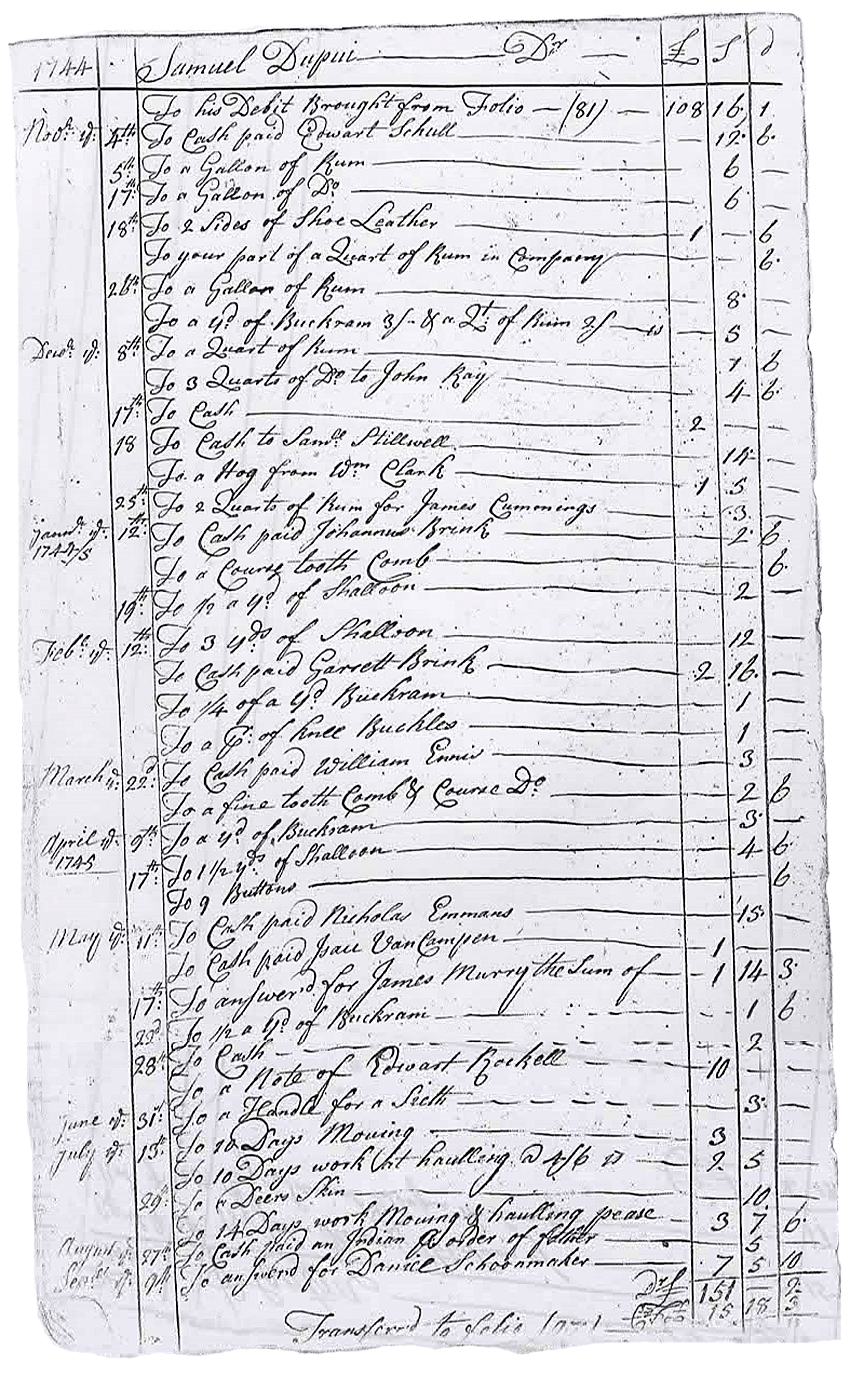 1744 Samuel Dupui Dr £ S d
To his Debit Brought from Folio (81) 108 16 1
Novr. ye. 4th To Cash paid Edwart Schull 12 6
5th To a Gallon of Rum 6
17th To a Gallon of Do. 6
18th To 2 Sides of Shoe Leather 1 — 6
To your part of a Quart of Rum in Company 6
26th To a Gallon of Rum 8
To a yd of Buckram 3/- & a Qt. of Rum 2/ is 5
Decr. ye. 8th To a Quart of Rum 1 6
To 3 Quarts of Do to John Kay 4 6
17th To Cash 2
18 To Cash to Saml. Stillwell 14
To a Hog from Wm Clark 1 5
25th To 2 Quarts of Rum for James Cummings 3
Jannr. ye. 12th To Cash paid Johannus Brink 2 6
1744/5
To a Course tooth Comb 6
19th To 1/2 a yd of Shalloon 2
Febr. ye. 12th To 3 yds of Shalloon 12
To Cash paid Garrett Brink 2 16
To 1/4 of a yd Buckram 1
To a Pr. of knee Buckles 1
March ye. 22d To Cash paid William Ennis 3
To a fine tooth Comb & Course Do 2 6
April ye. 9th To a yd of Buckram 3
1745
17th To 1 1/2 yds of Shalloon 4 6
To 9 Buttons 6
May ye. 11th To Cash paid Nicholas Emmans 15
To Cash paid Isau VanCampen 1
17th To answerd for James Murry the Sum of 1 14 3
22d To 1/2 a yd of Buckram 1 6
28th To Cash 2
To a Note of Edwart Rockell 10
June ye. 31st To a Handle for a Sieth 3
July ye. 13th To 10 Days Mowing 3
To 10 Days work at haulling @ 4/6 is 2 5
29th To a Deers Skin 10
To 14 Days work Mowing & haulling pease 3 7 6
August ye. 27th To Cash paid an Indian P order of father 5
Sepr. ye. 9th To answerd for Daniel Schoonmaker 7 5 10
Dr £ 151
15 18
Transferrd to folio